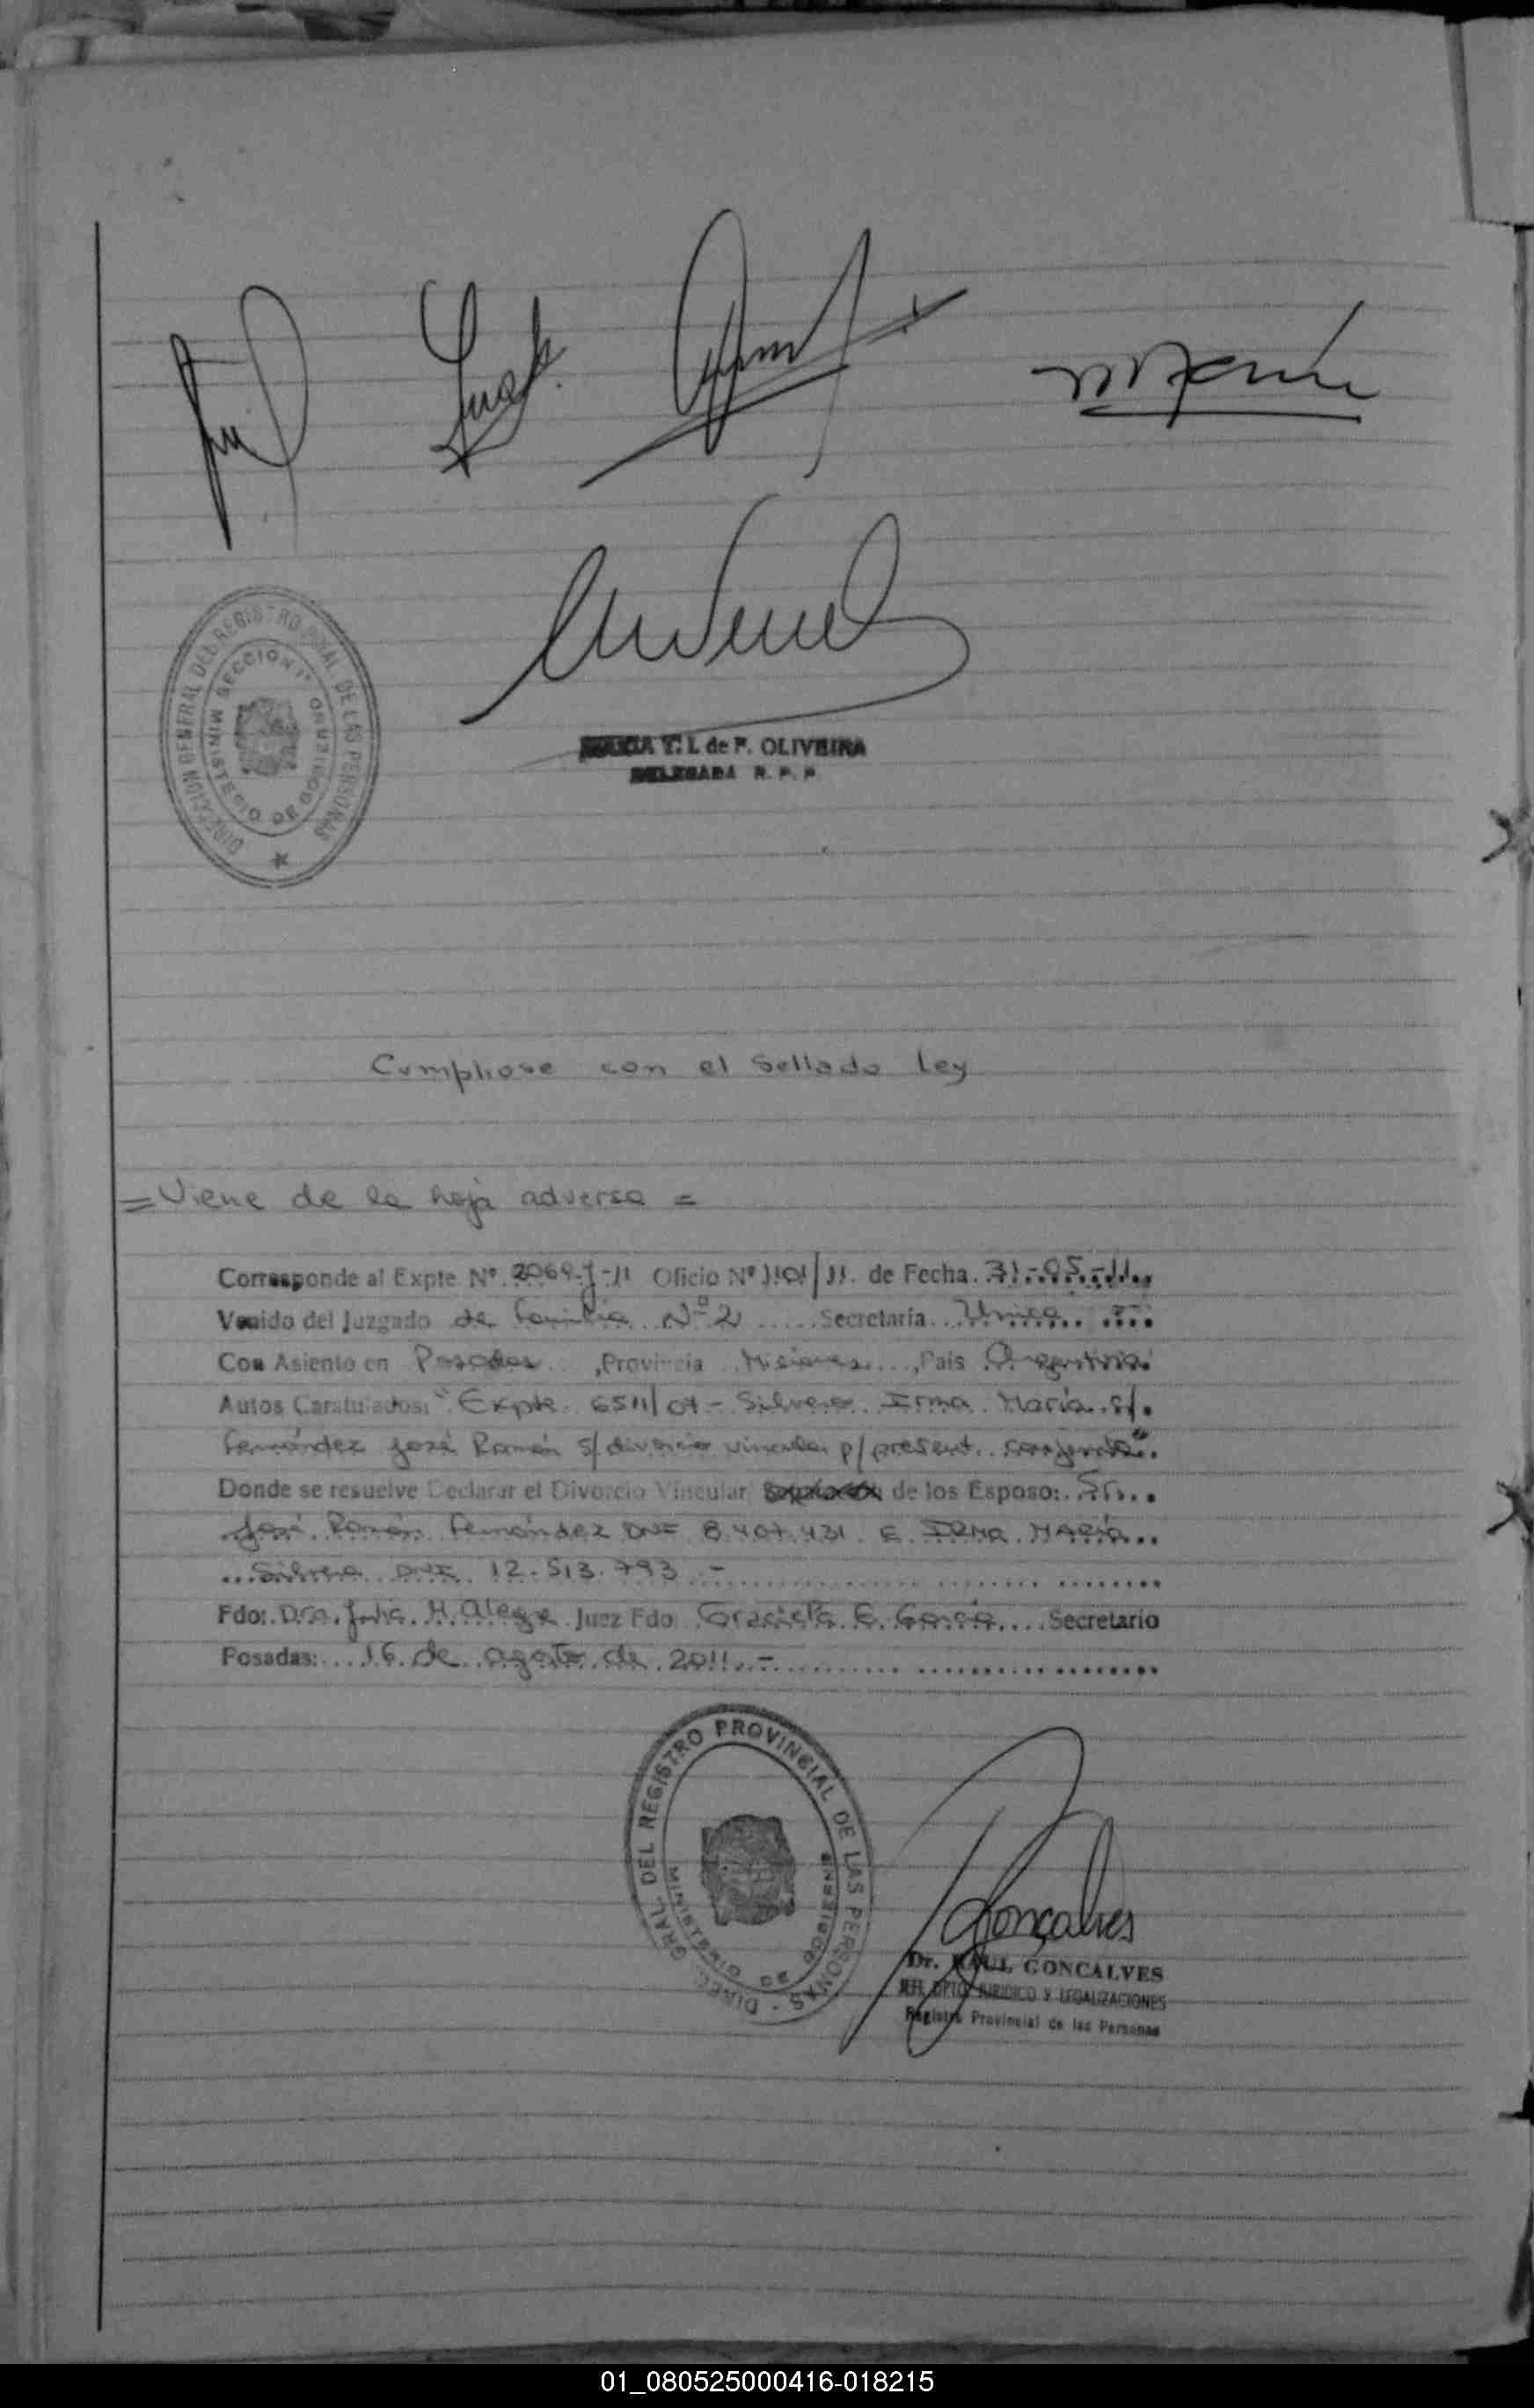 DIRECCION GENERAL DEL REGISTRO PCIAL. DE LAS PERSONAS
SECCION 1ª
MINISTERIO DE GOBIERNO
MARIA T. I. de F. OLIVEIRA
DELEGADA R. P. P.
Cumpliose con el Sellado Ley
= Viene de la hoja adversa =
Corresponde al Expte. Nº 2069-J-11 Oficio Nº 1101/11. de Fecha 31-05-11
Venido del Juzgado de Familia Nº 2 Secretaría Unica
Con Asiento en Posadas, Provincia Misiones, País Argentina
Autos Caratulados: "Expte. 6511/07 - Silvera Irma María s/.
Fernández José Ramón s/ divorcio vincular p/ present. conjunta".
Donde se resuelve Declarar el Divorcio Vincular de los Esposo: Sr.
José Ramón Fernández DNI 8.407.431 E IRMA MARÍA
Silvera DNI 12.513.793 -
Fdo: Dra. Julia H. Alegre Juez Fdo. Graciela E. García Secretario
Posadas: 16 de agosto de 2011.-
DIREC. GRAL. DEL REGISTRO PROVINCIAL DE LAS PERSONAS -
MINISTERIO DE GOBIERNO
Gonçalves
Dr. RAUL GONCALVES
JEFE DPTO. JURIDICO Y LEGALIZACIONES
Registro Provincial de las Personas
01_080525000416-018215